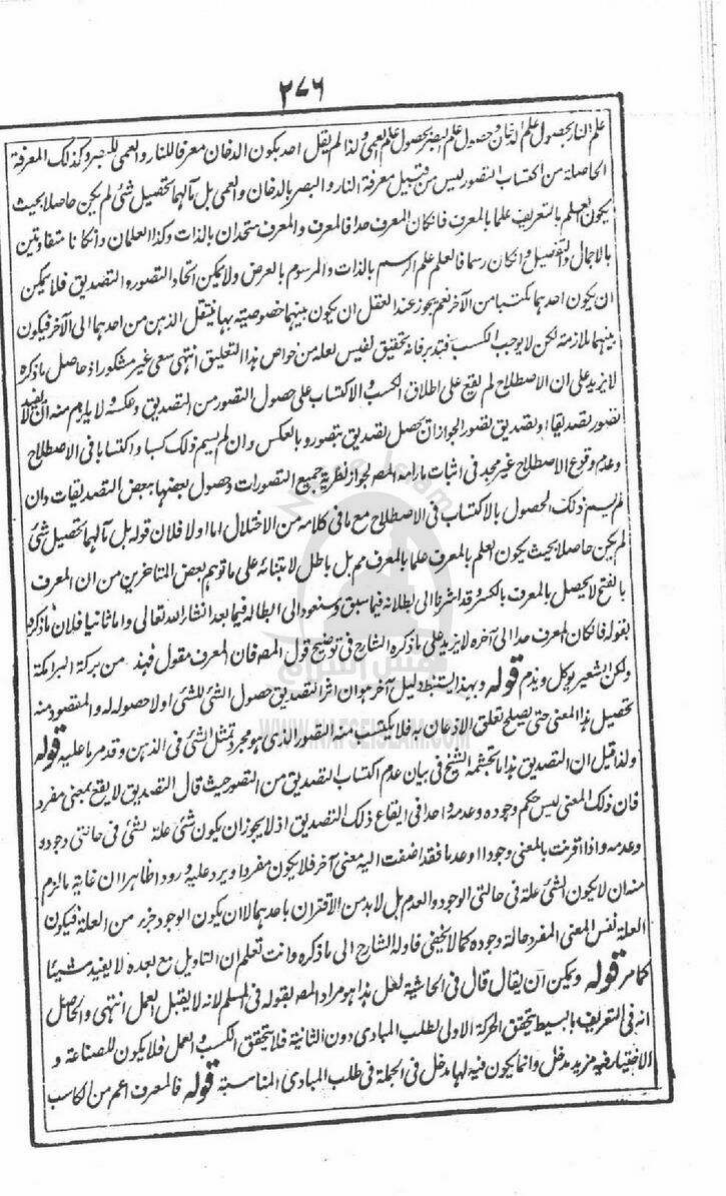 ٢٧٦
علم النار بحصول علم الدخان وحصول علم البصر بحصول علم العمى ولذا لم يقل احد بكون الدخان معرفا للنار والعمى للبصر وكذلك المعرفة
الحاصلة من اكتساب التصور ليس من قبيل معرفة النار والبصر بالدخان والعمى بل مآلهما تحصيل شئ لم يكن حاصلا بحيث
يكون العلم بالتعريف علما بالمعرف فانكان المعرف حدا فالمعرف والمعرف متحدان بالذات وكذا العلمان وانكانا متفاوتين
بالاجمال والتفصيل وانكان رسما فالعلم علم الرسم بالذات والمرسوم بالعرض ولا يمكن اتحاد التصور و التصديق فلا يمكن
ان يكون احدهما مكتسبا من الآخر نعم يجوز عند العقل ان يكون بينهما خصوصية بها ينتقل الذهن من احدهما الى الآخر فيكون
بينهما ملازمة لكن لا يوجب الكسب فتدبر فانه تحقيق نفيس لعله من خواص هذا التعليق انتهى سعى غير مشكور اذ حاصل ما ذكره
لا يزيد على ان الاصطلاح لم يقع على اطلاق الكسب والاكتساب على حصول التصور من التصديق وعكسه ولا يلزم منه ان لا يفيد
تصور تصديقا او تصديق تصور الجواز ان يحصل تصديق بتصور وبالعكس وان لم يسم ذلك كسبا واكتسابا فى الاصطلاح
وعدم وقوع الاصطلاح غير مجد فى اثبات ما رامه المصـ لجواز نظرية جميع التصورات وحصول بعضها ببعض التصديقات وان
لم يسم ذلك الحصول بالاكتساب فى الاصطلاح مع ما فى كلامه من الاختلال اما اولا فلان قوله بل مآلهما تحصيل شئ
لم يكن حاصلا بحيث يكون العلم بالمعرف علما بالمعرف مم بل باطل لابتنائه على ما توهم بعض المتاخرين من ان المعرف
بالفتح لا يحصل بالمعرف بالكسر وقد اشرنا الى بطلانه فيما سبق وسنعود الى ابطاله فيما بعد انشاء الله تعالى واما ثانيا فلان ما ذكره
بقوله فانكان المعرف حدا الى آخره لا يزيد على ما ذكره الشارح فى توضيح قول المصـ فان المعرف مقول فهذ من بركة البرامكة
ولكن الشعير يوكل ويذم قوله وبهذا يستنبط دليل آخر هو ان اثر التصديق حصول الشئ للشئ او لا حصوله له والمقصود منه
تحصيل هذا المعنى حتى يصلح تعلق الاذعان به فلا يكتسب منه التصور الذى هو مجرد تمثل الشئ فى الذهن وقد مر ما عليه قوله
ولذا قيل ان التصديق هذا ما تجشمه الشيخ فى بيان عدم اكتساب التصديق من التصور حيث قال التصديق لا يقع بمعنى مفرد
فان ذلك المعنى ليس حكم وجوده وعدمه واحدا فى ايقاع ذلك التصديق اذ لا يجوز ان يكون شئ علة لشئ فى حالتى وجوده
وعدمه واذا اقرنت بالمعنى وجودا او عدما فقد اضفت اليه معنى آخر فلا يكون مفردا ويرد عليه ورودا ظاهرا ان غاية ما لزم
منه ان لا يكون الشئ علة فى حالتى الوجود والعدم بل لا بد من الاقتران باحدهما لا ان يكون الوجود جزء من العلة فيكون
العلة نفس المعنى المفرد حالة وجوده كما لا يخفى فاوله الشارح الى ما ذكره وانت تعلم ان التاويل مع بعده لا يفيد شيئا
كما مر قوله ويمكن ان يقال قال فى الحاشية لعل هذا هو مراد المصـ بقوله فى المسلم لانه لا يقبل العمل انتهى والحاصل
انه فى التعريف بالبسيط يتحقق الحركة الاولى لطلب المبادى دون الثانية فلا يتحقق الكسب والعمل فلا يكون للصناعة و
الاختيار فيه مزيد مدخل وانما يكون فيه لها مدخل فى الجملة فى طلب المبادى المناسبة قوله فالمعرف اعم من الكاسب
WWW.NAFSEISLAM.COM